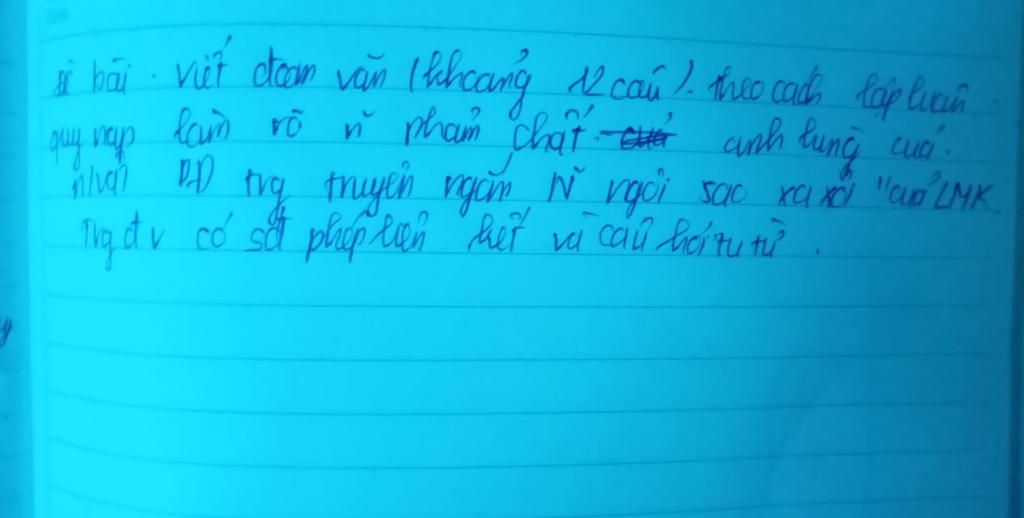 bài. viết đoạn văn (khoảng 12 câu). theo cách lập luận
quy nạp làm rõ n~ phẩm chất anh hùng của.
nhận PĐ trg truyện ngắn N~ ngôi sao xa xôi "của LMK
Trg đv có sd phép liên kết và câu hỏi tu từ.